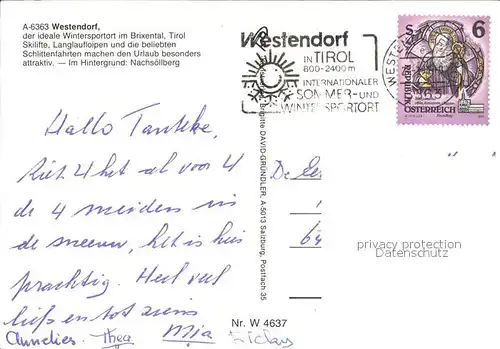 A-6363 Westendorf,
der ideale Wintersportort im Brixental, Tirol
Skilifte, Langlaufloipen und die beliebten
Schlittenfahrten machen den Urlaub besonders
attraktiv. — Im Hintergrund: Nachsöllberg
Westendorf
IN TIROL
800-2400 m
INTERNATIONALER
SOMMER- UND
WINTERSPORTORT
WESTEN
6
REPUBLIK
ÖSTERREICH
Hallo Tantke,
ziet 4 het al voor 4
de 4 meiden in
de sneeuw, het is hier
prachtig. Heel veel
liefs en tot ziens
Annelies. Thea Mia
Brigitte DAVID-GRÜNDLER, A-5013 Salzburg, Postfach 35
De
64
privacy protection
Datenschutz
Nr. W 4637